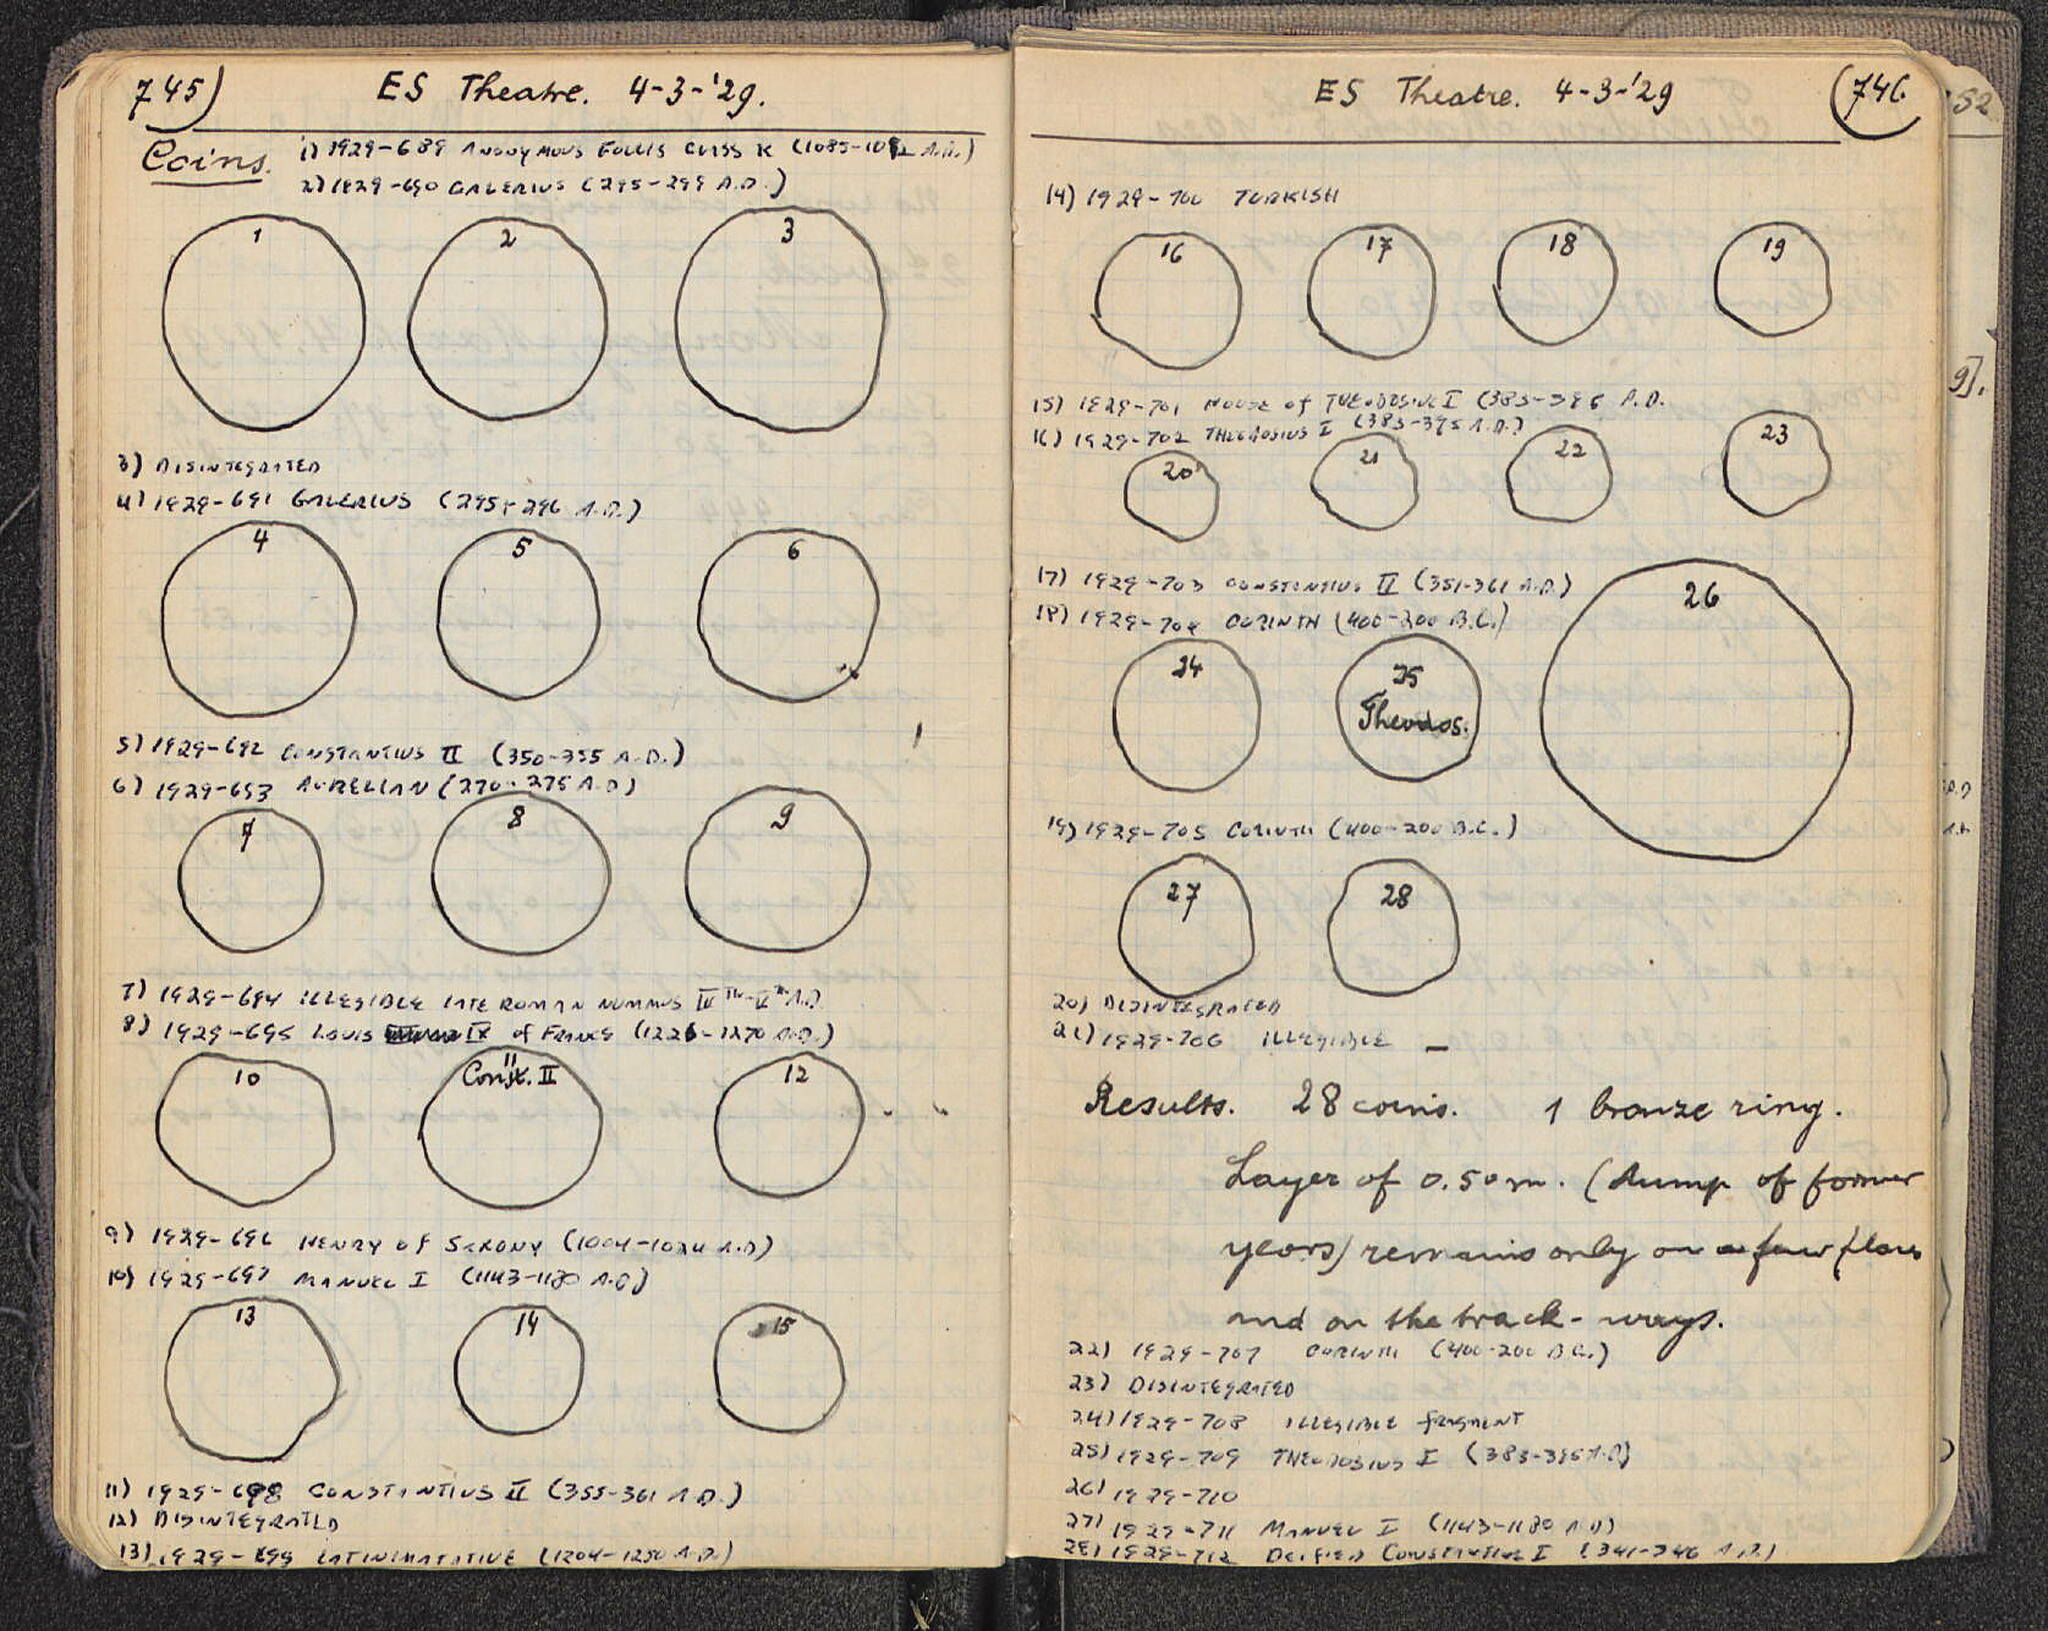 745)
ES Theatre. 4-3-'29.
Coins.
1) 1929-689 ANONYMOUS FOLLIS CLASS K (1085-1092 A.D.)
2) 1929-690 GALERIUS (295-299 A.D.)
1 2 3
3) DISINTEGRATED
4) 1929-691 GALERIUS (295-296 A.D.)
4 5 6
5) 1929-692 CONSTANTIUS II (350-355 A.D.)
6) 1929-693 AURELIAN (270-275 A.D)
7 8 9
7) 1929-694 ILLEGIBLE LATE ROMAN NUMMUS IVTH-VTH A.D.
8) 1929-695 LOUIS IX of FRANCE (1226-1270 A.D.)
10 11 12
Const. II
9) 1929-696 HENRY of SAXONY (1004-1024 A.D)
10) 1929-697 MANUEL I (1143-1180 A.D)
13 14 15
11) 1929-698 CONSTANTIUS II (355-361 A.D.)
12) DISINTEGRATED
13) 1929-699 LATIN IMITATIVE (1204-1250 A.D.)
ES Theatre. 4-3-'29
(746.
14) 1929-700 TURKISH
16 17 18 19
15) 1929-701 HOUSE of THEODOSIUS I (383-395 A.D.
16) 1929-702 THEODOSIUS I (383-395 A.D.)
20 21 22 23
17) 1929-703 CONSTANTIUS II (351-361 A.D.)
18) 1929-704 CORINTH (400-200 B.C.)
24 25 26
Theodos.
19) 1929-705 CORINTH (400-200 B.C.)
27 28
20) DISINTEGRATED
21) 1929-706 ILLEGIBLE —
Results. 28 coins. 1 bronze ring.
Layer of 0.50 m. (dump of former
years) remains only on a few places
and on the track-ways.
22) 1929-707 CORINTH (400-200 B.C.)
23) DISINTEGRATED
24) 1929-708 ILLEGIBLE fragment
25) 1929-709 THEODOSIUS I (383-395 A.D)
26) 1929-710
27) 1929-711 MANUEL I (1143-1180 A.D)
28) 1929-712 DEIFIED CONSTANTINE I (341-346 A.D.)
52
9].